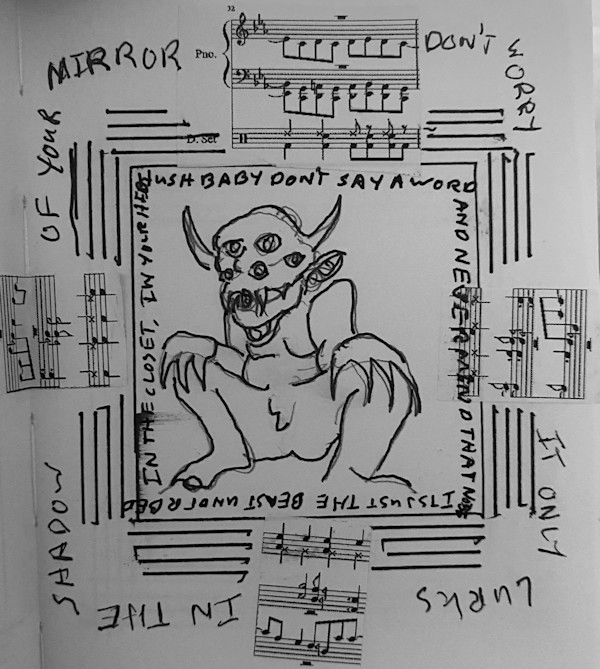 32
Pno.
D. Set
DON'T
WORRY
IT ONLY
LURKS
IN THE
SHADOW
OF YOUR
MIRROR
HUSH BABY DON'T SAY A WORD
AND NEVER MIND THAT
ITS JUST THE BEAST UNDER BED
IN THE CLOSET, IN YOUR HEAD